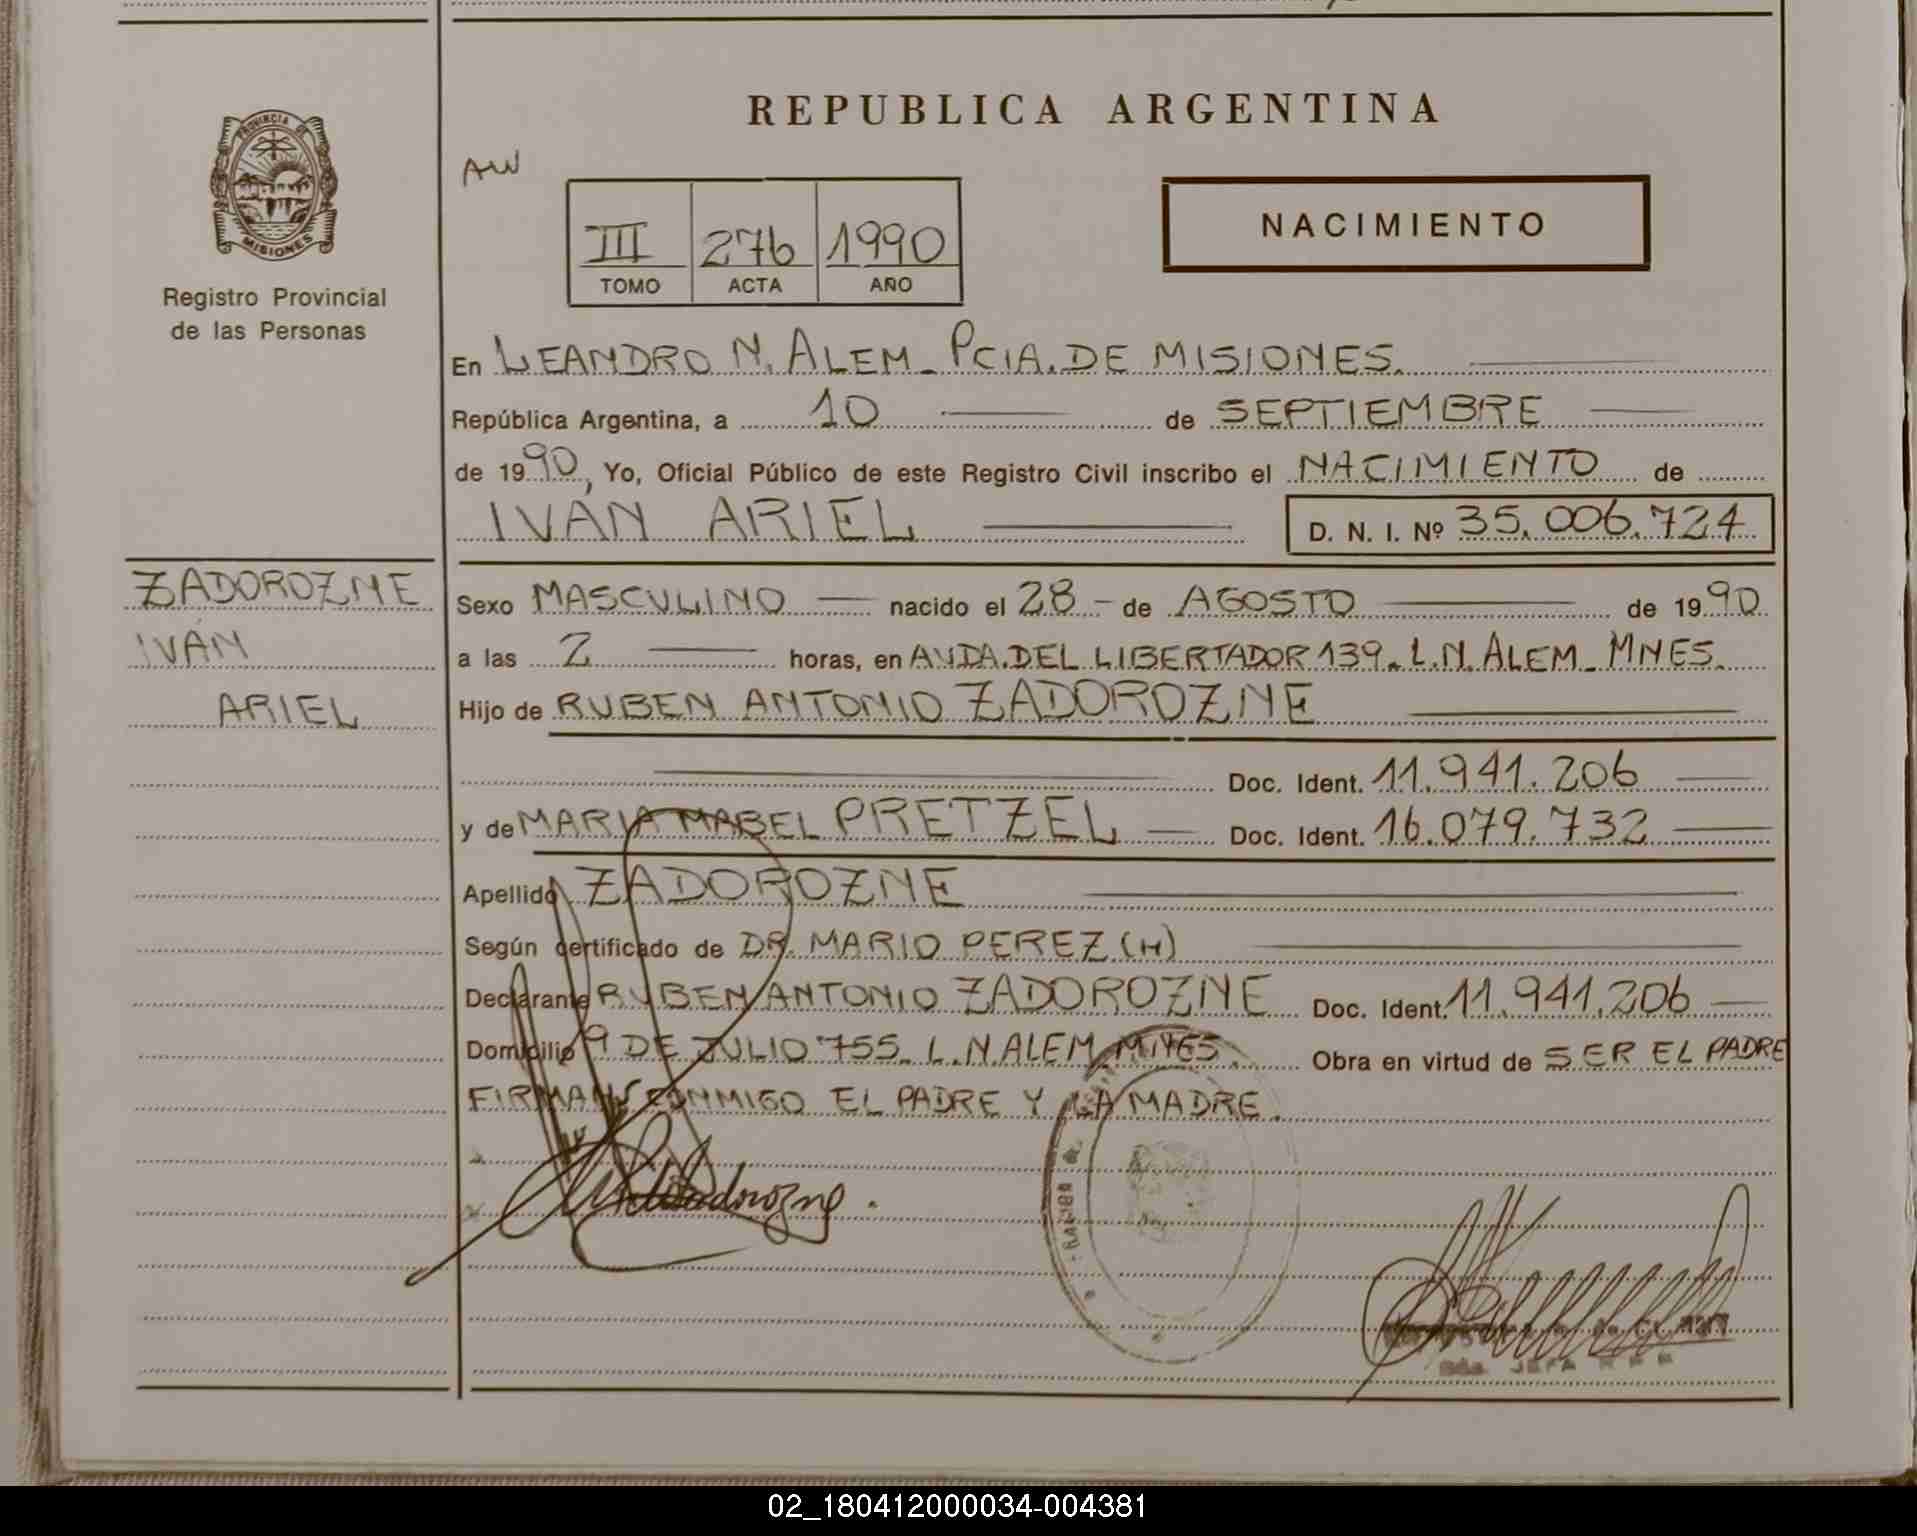 PROVINCIA DE
MISIONES
Registro Provincial
de las Personas
ZADOROZNE
IVÁN
ARIEL
REPUBLICA ARGENTINA
AW
III 276 1990
TOMO ACTA AÑO
NACIMIENTO
En LEANDRO N. ALEM_ PCIA. DE MISIONES.
República Argentina, a 10 de SEPTIEMBRE
de 1990, Yo, Oficial Público de este Registro Civil inscribo el NACIMIENTO de
IVÁN ARIEL D. N. I. Nº 35.006.724
Sexo MASCULINO nacido el 28 de AGOSTO de 1990
a las 2 horas, en AVDA. DEL LIBERTADOR 139_ L.N. ALEM_ MNES.
Hijo de RUBEN ANTONIO ZADOROZNE
Doc. Ident. 11.941.206
y de MARIA MABEL PRETZEL Doc. Ident. 16.079.732
Apellido ZADOROZNE
Según certificado de DR. MARIO PEREZ (H)
Declarante RUBEN ANTONIO ZADOROZNE Doc. Ident. 11.941.206
Domicilio 9 DE JULIO 755_ L.N. ALEM_ MNES. Obra en virtud de SER EL PADRE
FIRMAN CONMIGO EL PADRE Y LA MADRE.
JEFA
02_180412000034-004381